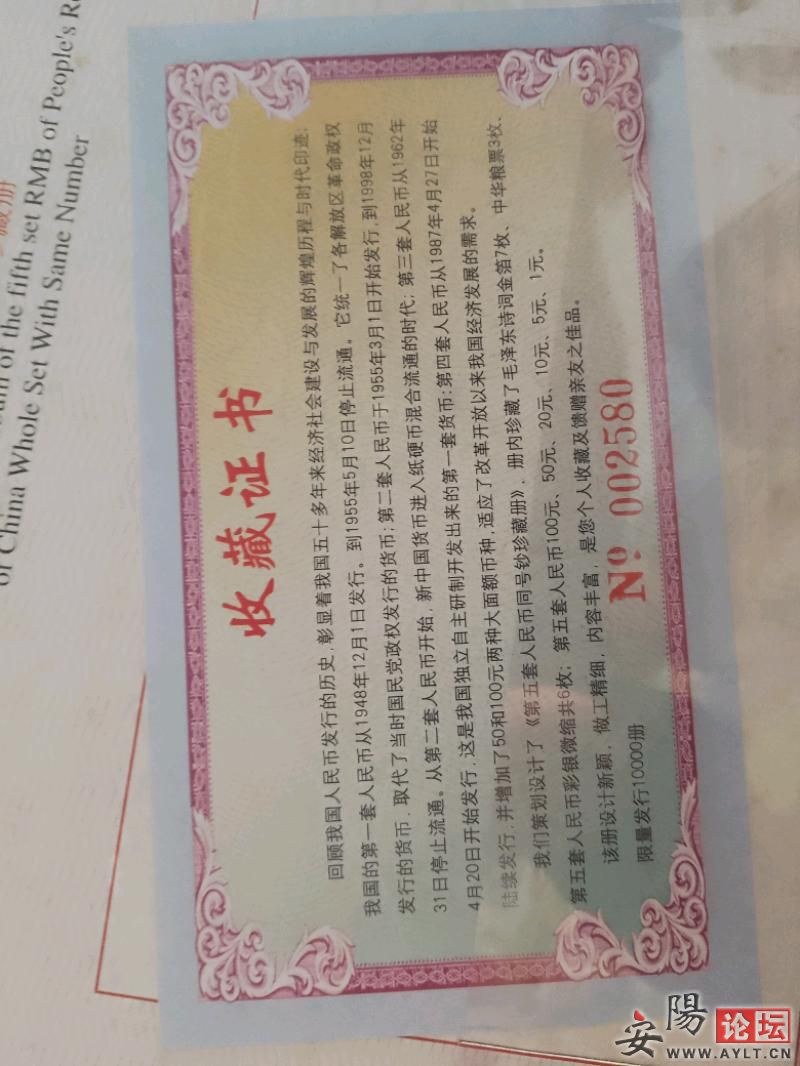 藏册
of the fifth set RMB of People's Re
of China Whole Set With Same Number
收藏证书
回顾我国人民币发行的历史,彰显着我国五十多年来经济社会建设与发展的辉煌历程与时代印迹,
我国的第一套人民币从1948年12月1日发行。到1955年5月10日停止流通。它统一了各解放区革命政权
发行的货币,取代了当时国民党政权发行的货币;第二套人民币于1955年3月1日开始发行,到1998年12月
31日停止流通。从第二套人民币开始,新中国货币进入纸硬币混合流通的时代;第三套人民币从1962年
4月20日开始发行,这是我国独立自主研制开发出来的第一套货币;第四套人民币从1987年4月27日开始
陆续发行,并增加了50和100元两种大面额币种,适应了改革开放以来我国经济发展的需求。
我们策划设计了《第五套人民币同号钞珍藏册》,册内珍藏了毛泽东诗词金箔7枚、中华粮票3枚、
第五套人民币彩银微缩共6枚;第五套人民币100元、50元、20元、10元、5元、1元。
该册设计新颖,做工精细,内容丰富,是您个人收藏及馈赠亲友之佳品。
限量发行10000册
Nº 002580
安陽论坛
WWW.AYLT.CN